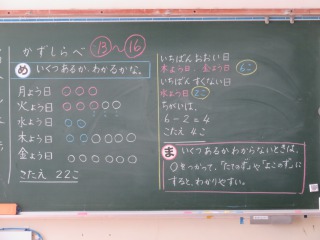 かずしらべ 13〜16
め いくつあるか、わかるかな。
月よう日 ○○○
火よう日 ○○○○○
水よう日 ○○
木よう日 ○○○○○○
金よう日 ○○○○○○
こたえ 22こ
いちばんおおい日
木よう日、金よう日 6こ
いちばんすくない日
水よう日 2こ
ちがいは、
6-2=4
こたえ 4こ
ま いくつあるかわからないときは、
○をつかって、「たてのず」や「よこのず」に
すると、わかりやすい。